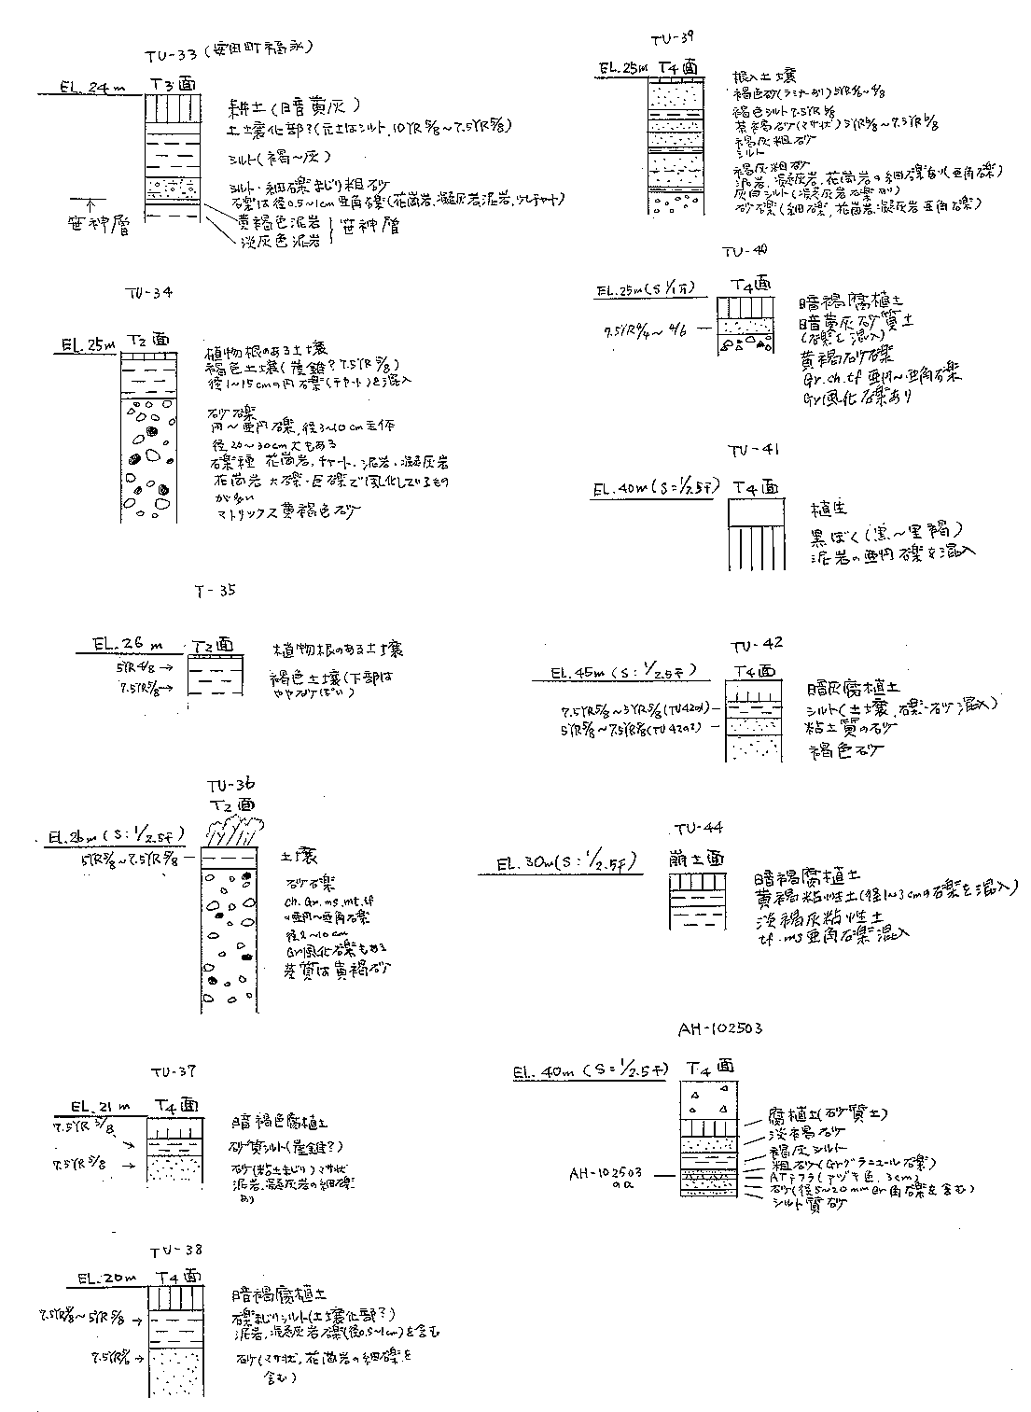 TU-33 (安田町福永)
EL.24m T3面
耕土(暗黄灰)
土壌化部?(元土はシルト,10YR5/8~7.5YR5/8)
シルト(褐~灰)
シルト・細礫まじり粗砂
礫は径0.5~1cm亜角礫(花崗岩,凝灰岩,泥岩,少しチャート)
黄褐色泥岩
淡灰色泥岩
笹神層
笹神層
TU-34
EL.25m T2面
植物根のある土壌
褐色土壌(崖錐?7.5YR5/8)
径1~15cmの円礫(チャート)を混入
砂礫
円~亜円礫,径3~10cm主体
径20~30cm大もある
礫種 花崗岩,チャート,泥岩,凝灰岩
花崗岩大礫・巨礫で風化しているもの
が多い
マトリックス黄褐色砂
T-35
EL.26m T2面
5YR4/8→
7.5YR5/8→
植物根のある土壌
褐色土壌(下部は
やや砂っぽい)
TU-36
T2面
EL.26m(S:1/2.5千)
5YR5/8~7.5YR5/8
土壌
砂礫
ch.Gr.ms.mt.tf
亜円~亜角礫
径2~10cm
Gr風化礫もある
基質は黄褐砂
TU-37
EL.21m T4面
7.5YR5/8
7.5YR5/8
暗褐色腐植土
砂質シルト(崖錐?)
砂(粘土まじり)マサ状
泥岩,凝灰岩の細礫
あり
TU-38
EL.20m T4面
7.5YR5/8~5YR5/8→
7.5YR→
暗褐腐植土
礫まじりシルト(土壌化部?)
泥岩,凝灰岩礫(径0.5~1cm)を含む
砂(マサ状,花崗岩の細礫を
含む)
TU-39
EL.25m T4面
根入土壌
褐色砂(ラミナーあり)5YR~4/8
褐色シルト7.5YR
茶褐砂(マサ状)5YR5/8~7.5YR
褐灰粗砂
シルト
褐灰粗砂
泥岩,凝灰岩,花崗岩の細礫あり(亜角礫)
灰白シルト(凝灰岩礫あり)
砂礫(細礫,花崗岩,凝灰岩亜角礫)
TU-40
EL.25m(S 1/1万) T4面
7.5YR4/4~4/6
暗褐腐植土
暗黄灰砂質土
(礫を混入)
黄褐砂礫
Gr.ch.tf亜円~亜角礫
Gr風化礫あり
TU-41
EL.40m(S=1/2.5千) T4面
植生
黒ぼく(黒~黒褐)
泥岩の亜円礫を混入
TU-42
EL.45m(S:1/2.5千) T4面
7.5YR5/8~5YR5/8(TU42a1)
5YR5/8~7.5YR5/8(TU42a2)
暗灰腐植土
シルト(土壌,礫・砂混入)
粘土質の砂
褐色砂
TU-44
EL.30m(S:1/2.5千) 崩土面
暗褐腐植土
黄褐粘性土(径1~3cmの礫を混入)
淡褐灰粘性土
tf.ms亜角礫混入
AH-102503
EL.40m(S=1/2.5千) T4面
腐植土(砂質土)
淡褐砂
褐灰シルト
粗砂(Grグラニュール礫)
AH-102503
aa
ATテフラ(アヅキ色,3cm)
砂(径5~20mmGr角礫を含む)
シルト質砂